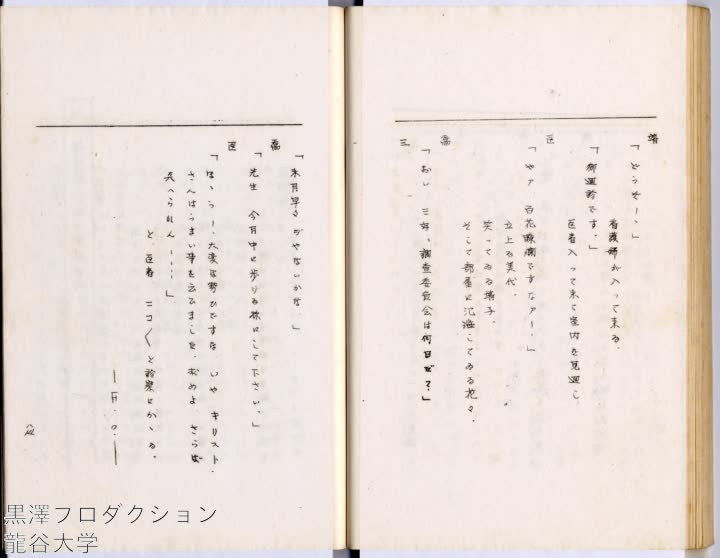 端
「どうぞー。」
看護婦が入って来る。
「御回診です。」
医者入って来て室内を見廻し、
医
「やァ 百花瞭爛ですなァー。」
立上る美代。
笑ってゐる端子。
そこで部屋に氾濫してゐる花々。
高
「おい 三好、調査委員会は何日だ？」
三
「来月早々ぢやないかな。」
高
「先生 今月中に歩ける様にして下さい。」
医
「はゝうー、大変な勢ひですな いや キリスト、
さんはうまい事を云ひました、求めよ さらば
与へられん ー ー ー」
と、医者 ニコ〳〵と診察にかゝる。
— F.O. —
黒澤プロダクション
龍谷大学